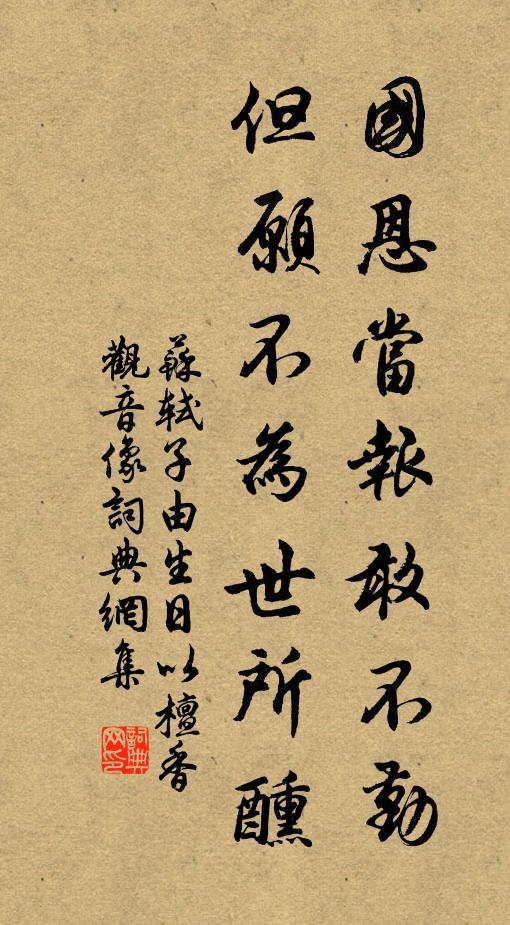 國恩當報敢不勤
但願不為世所醺
蘇軾子由生日以檀香
觀音像詞典網集
詞典网印